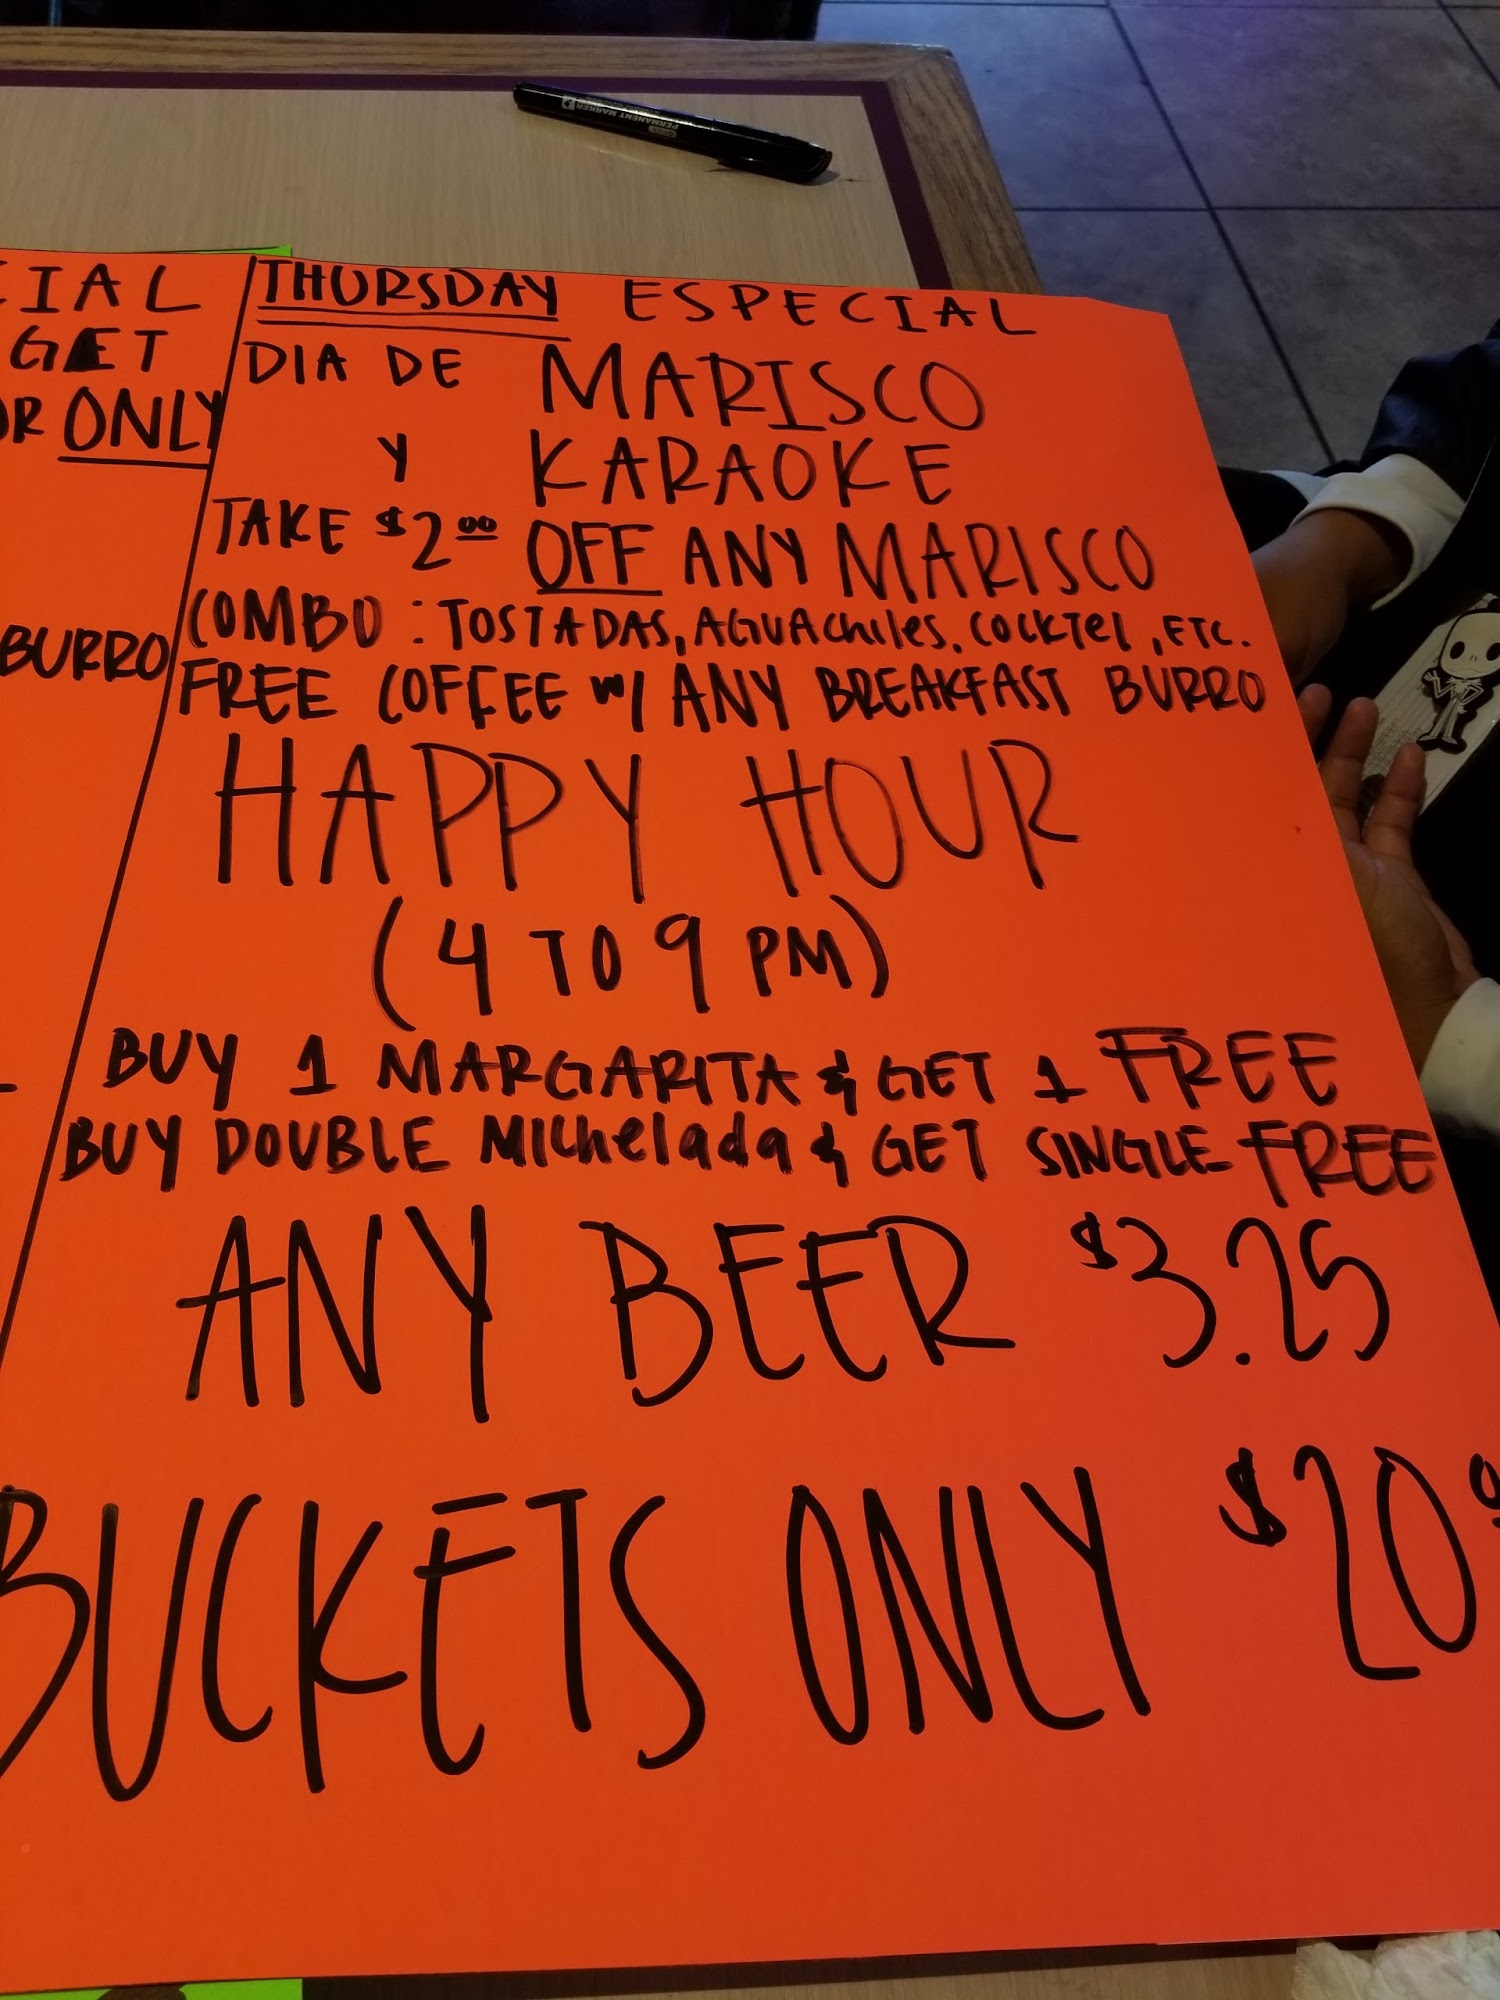 PERMANENT MARKER
CIAL
GET
OR ONLY
BURRO
THURSDAY ESPECIAL
DIA DE MARISCO
Y KARAOKE
TAKE $2.00 OFF ANY MARISCO
COMBO: TOSTADAS, AGUAchiles, COCKTel, ETC.
FREE COFFEE W/ ANY BREAKFAST BURRO
HAPPY HOUR
(4 TO 9 PM)
BUY 1 MARGARITA & GET 1 FREE
BUY DOUBLE Michelada & GET SINGLE FREE
ANY BEER $3.25
BUCKETS ONLY $20